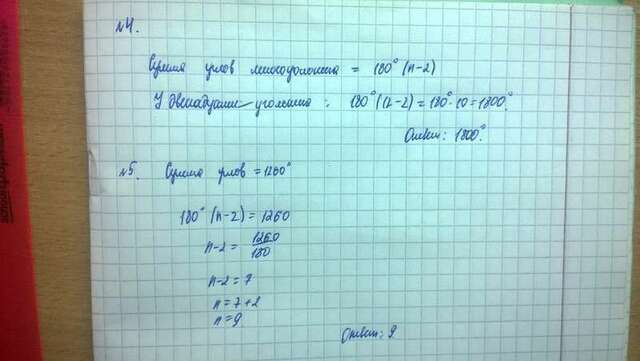 №4.
Сумма углов многоугольника = 180° (n-2)
У двенадцати-угольника: 180° (12-2) = 180° · 10 = 1800°.
Ответ: 1800°.
№5. Сумма углов = 1260°
180° (n-2) = 1260
n-2 = 1260/180
n-2 = 7
n = 7+2
n = 9
Ответ: 9